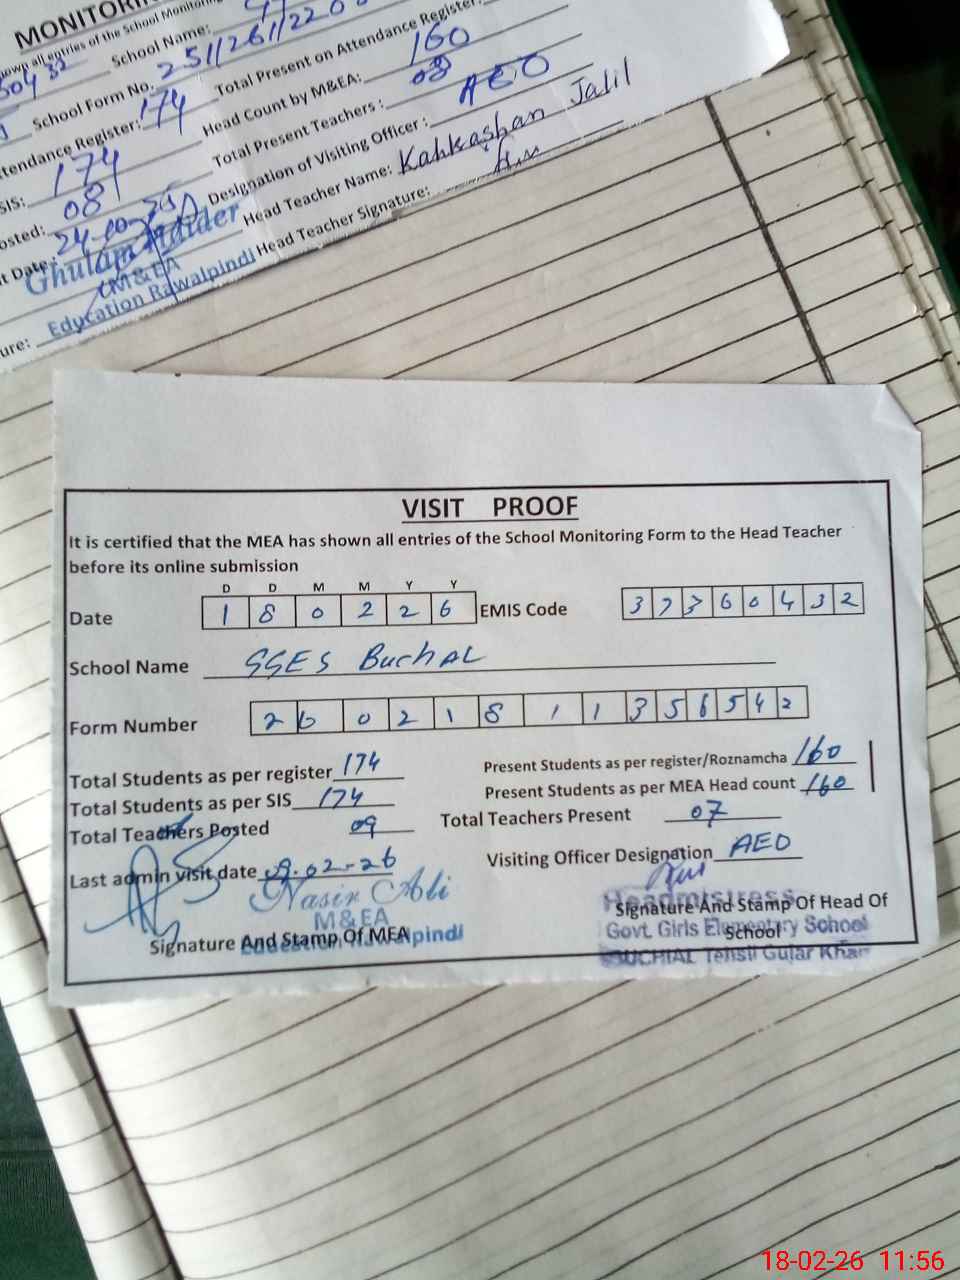 MONITORI
own all entries of the School Monitoring
School Name:
50432
School Form No. 251126112200
Total Present on Attendance Register: 160
ttendance Register: 174
Head Count by M&EA: 160
SIS: 174
Total Present Teachers : 08
osted: 08
Designation of Visiting Officer : AEO
t Date: 24-10-25
Head Teacher Name: Kahkashan Jalil
Head Teacher Signature:
Ghulam Haider
M&EA
Education Rawalpindi
ure:
VISIT PROOF
It is certified that the MEA has shown all entries of the School Monitoring Form to the Head Teacher
before its online submission
D D M M Y Y
Date 1 8 0 2 2 6 EMIS Code 3 7 3 6 0 4 3 2
School Name GGES Buchal
Form Number 2 6 0 2 1 8 1 1 3 5 6 5 4 2
Total Students as per register 174
Present Students as per register/Roznamcha 160
Total Students as per SIS 174
Present Students as per MEA Head count 160
Total Teachers Posted 09
Total Teachers Present 07
Last admin visit date 09.02-26
Visiting Officer Designation AEO
Nasir Ali
M&EA
Education Rawalpindi
Signature And Stamp Of MEA
Headmistress
Signature And Stamp Of Head Of
School
Govt. Girls Elementary School
BUCHIAL Tehsil Gujar Khan
18-02-26 11:56